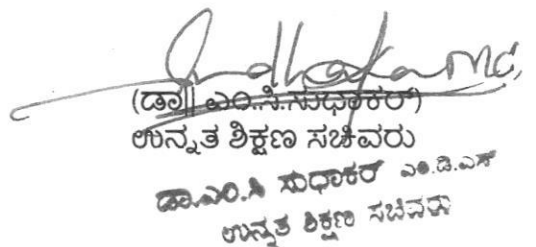 Sudhakar MC,
(ಡಾ|| ಎಂ.ಸಿ.ಸುಧಾಕರ್)
ಉನ್ನತ ಶಿಕ್ಷಣ ಸಚಿವರು
ಡಾ.ಎಂ.ಸಿ ಸುಧಾಕರ್ ಎಂ.ಡಿ.ಎಸ್
ಉನ್ನತ ಶಿಕ್ಷಣ ಸಚಿವರು